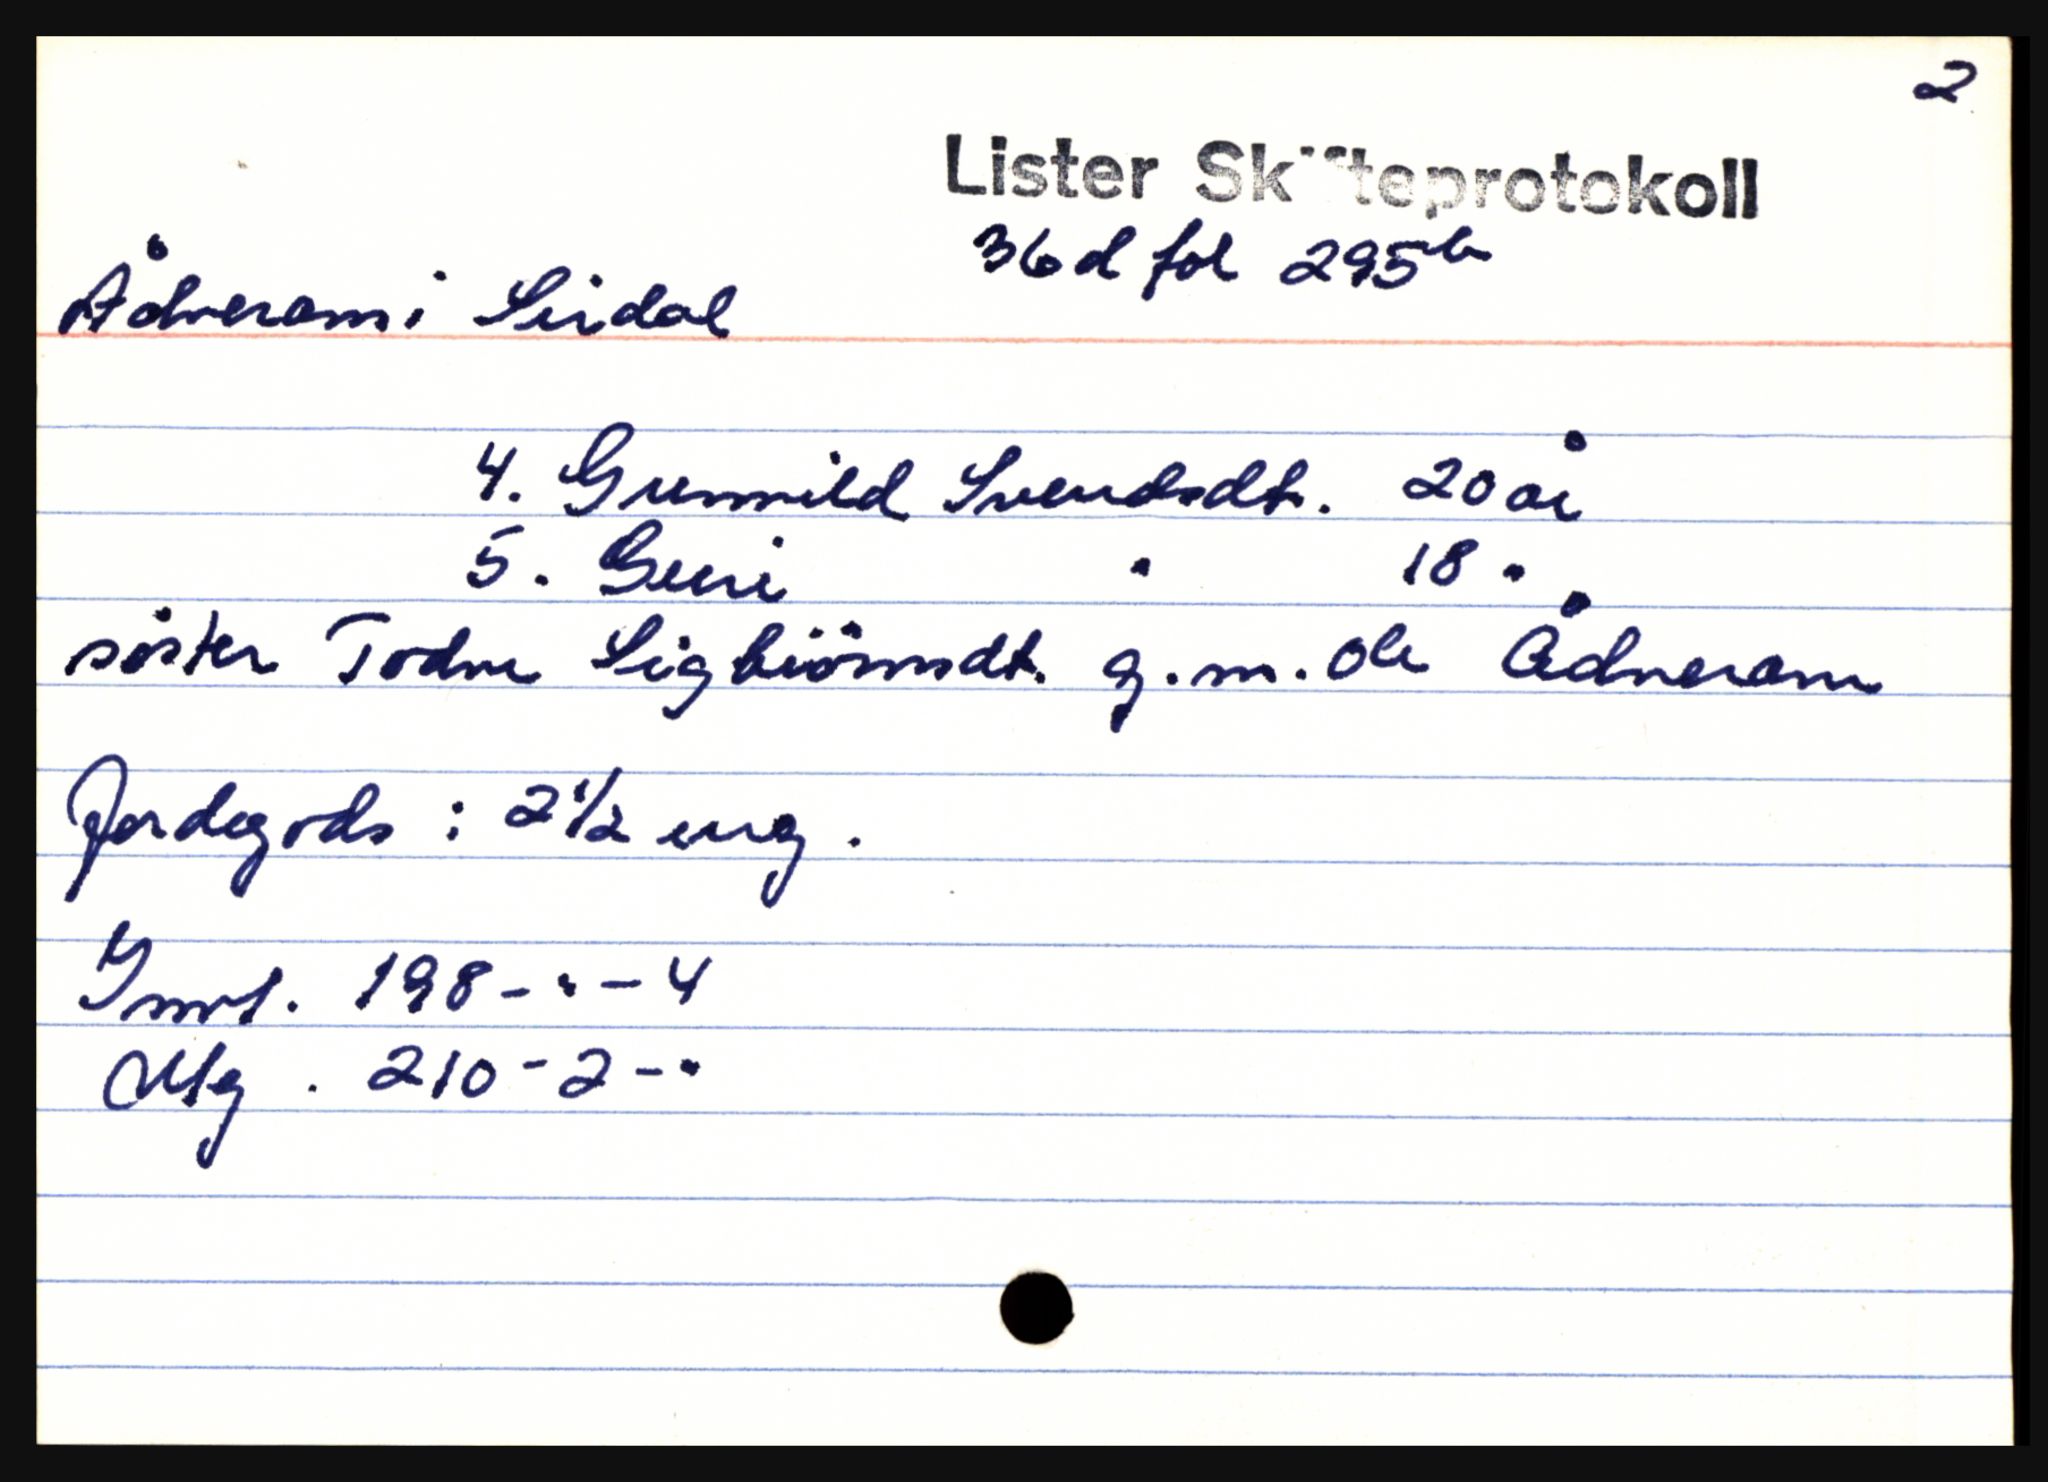 2
Lister Skifteprotokoll
36d fol 295b
Ådneram i Sirdal
4. Gunnild Svendsdt. 20 år
5. Guri " 18 "
söster Todne Sigbiörnsdt. g.m. Ole Ådneram
Jordegods : 2 1/2 eng.
198 - " - 4
Utg. 210 - 2 - "